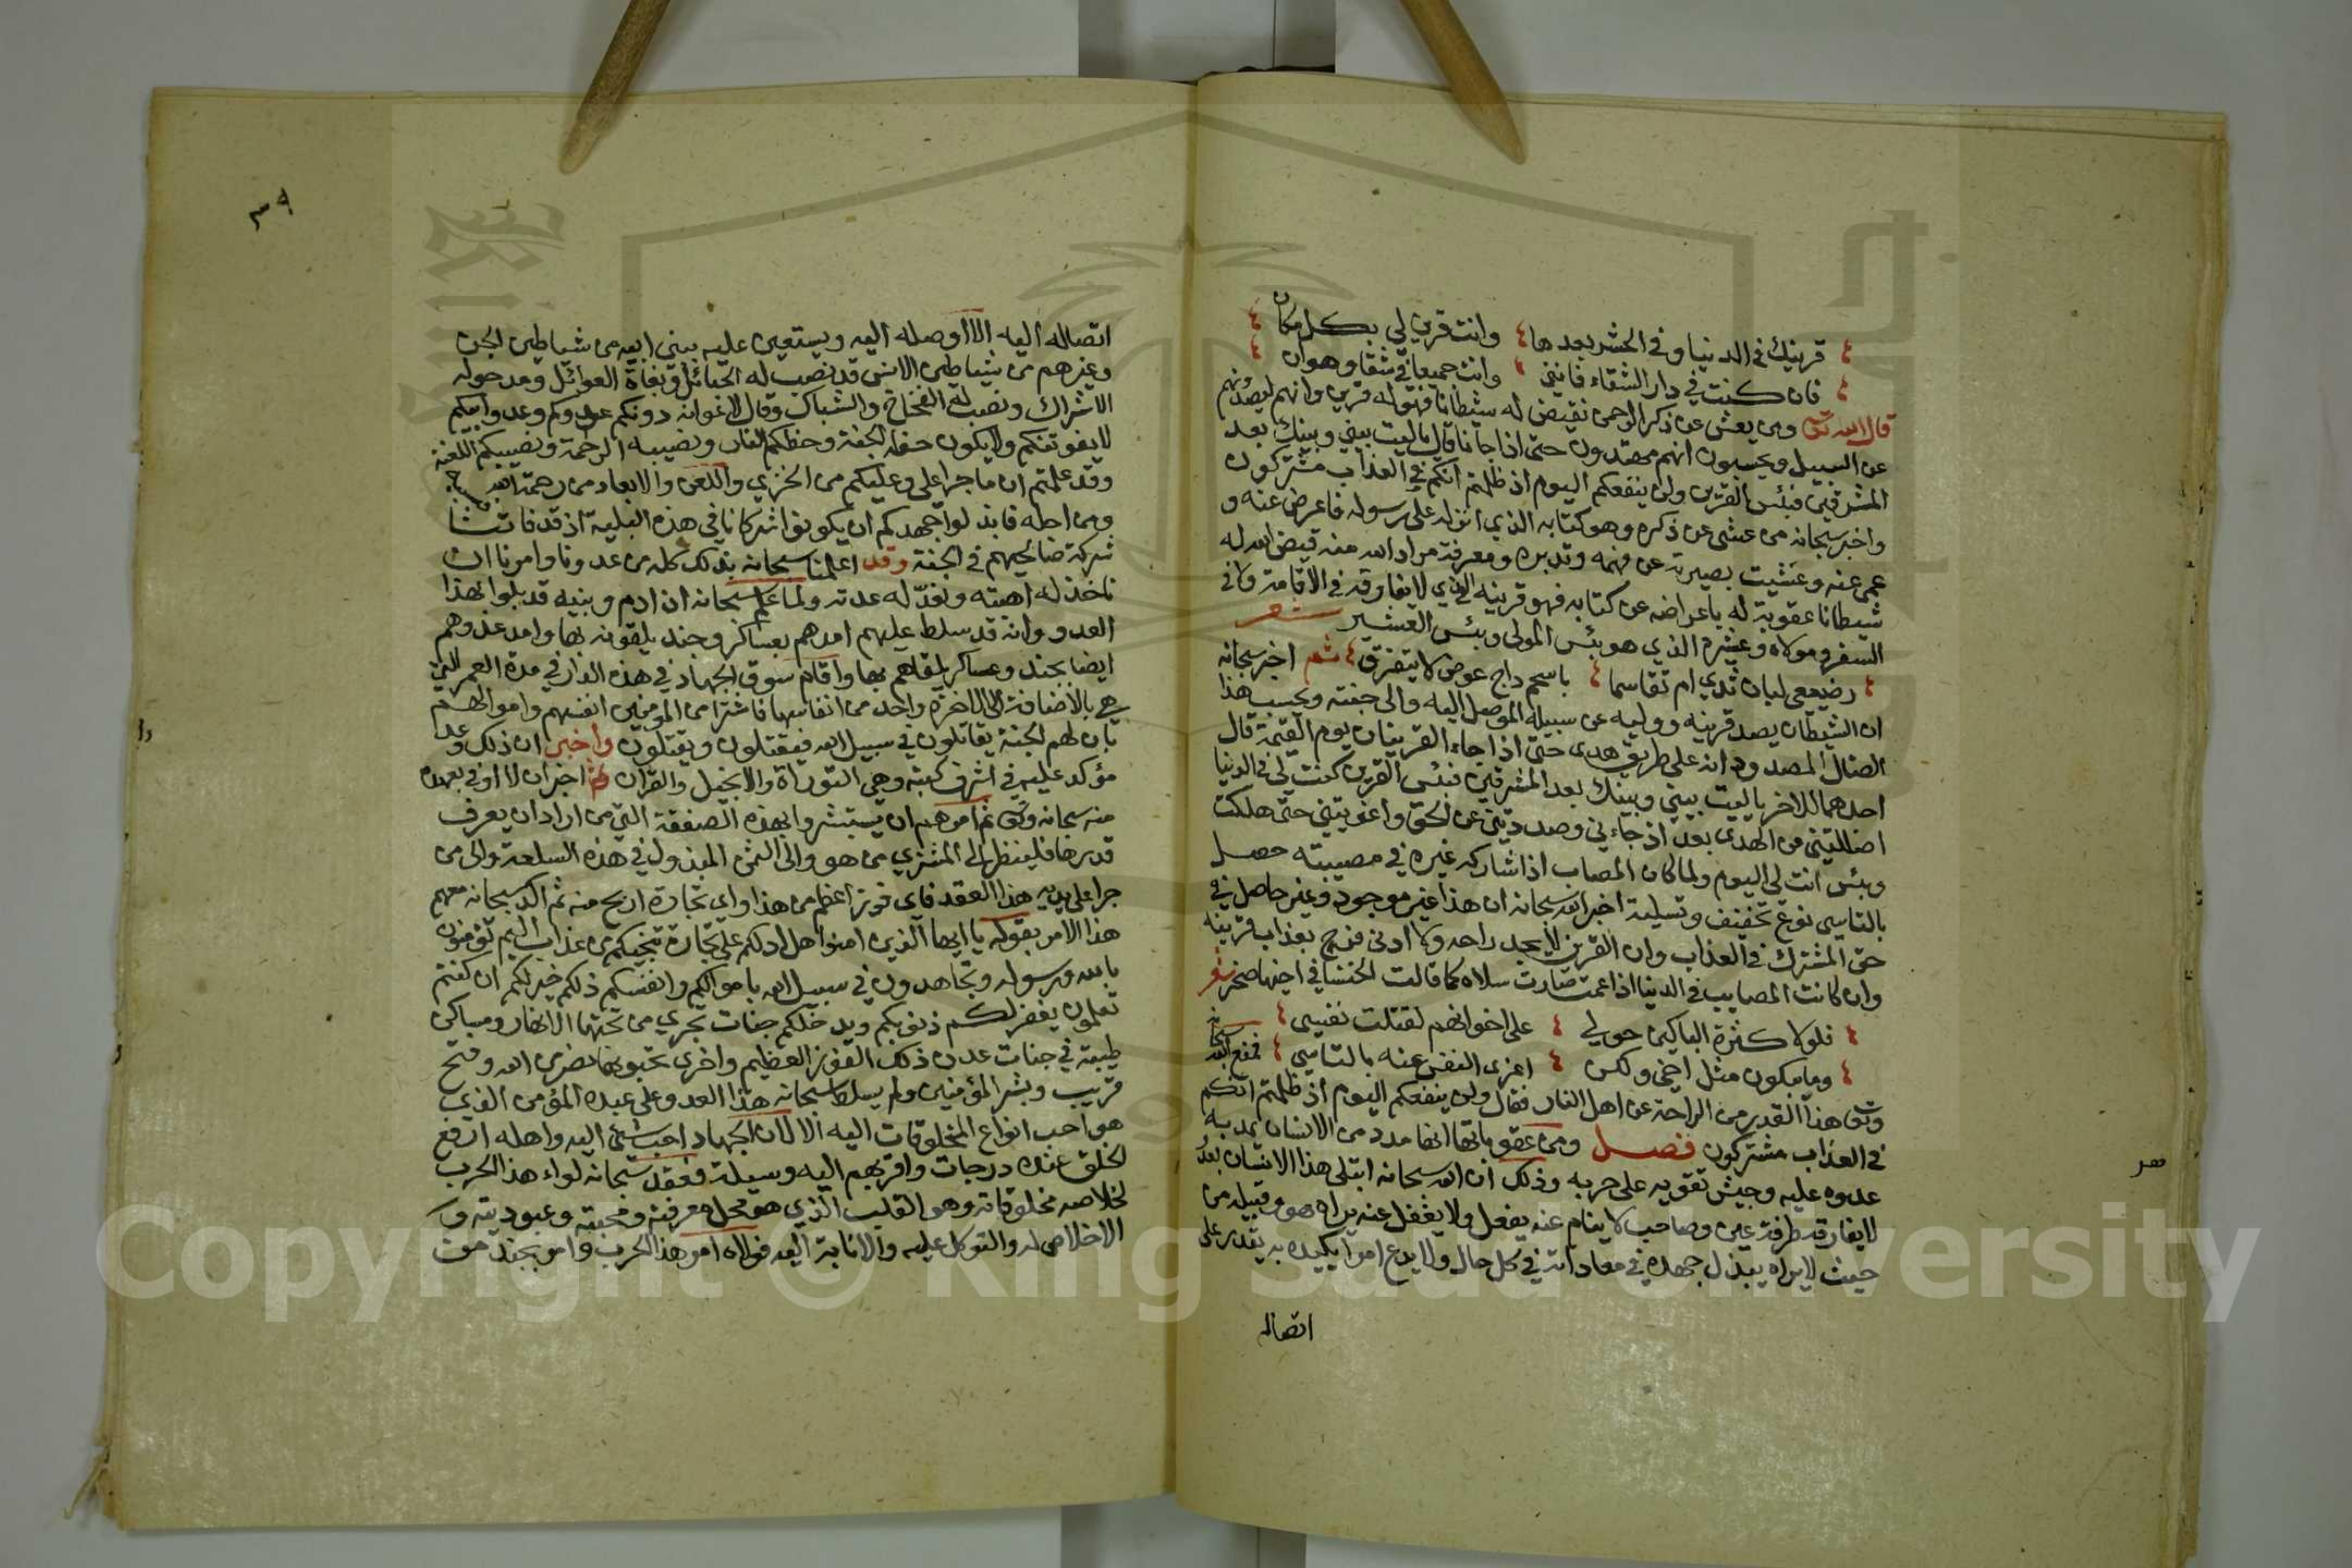 قرينك في الدنيا وفي الحشر بعدها وانت قرين لي بكل مكان
فان كنت في دار الشقاء فانني وانت جميعا في شقا وهوان
قال الله تعالى ومن يعش عن ذكر الرحمن نقيض له شيطانا فهو له قرين وانهم ليصدونهم
عن السبيل ويحسبون انهم مهتدون حتى اذا جانا قال يا ليت بيني وبينك بعد
المشرقين فبئس القرين ولن ينفعكم اليوم اذ ظلمتم انكم في العذاب مشتركون
واخبر سبحانه من عشى عن ذكره وهو كتابه الذي انزله على رسوله فاعرض عنه و
عمي عنه وعشيت بصيرته عن فهمه وتدبره ومعرفة مراد الله منه قيض الله له
شيطانا عقوبة له باعراضه عن كتابه فهو قرينه الذي لا يفارقه في الاقامة ولا في
السفر ومولاه وعشيره الذي هو بئس المولى وبئس العشير شعر
رضيعي لبان ثدي ام تقاسما باسحم داج عوض لا يتفرق ثم اخبر سبحانه
ان الشيطان يصد قرينه ووليه عن سبيله الموصل اليه والى جنته ويحسب هذا
الضال المصدود انه على طريق هدى حتى اذا جاء القرينان يوم القيمة قال
احدهما للاخر يا ليت بيني وبينك بعد المشرقين فبئس القرين كنت لي في الدنيا
اضللتني عن الهدى بعد اذ جاءني وصددتني عن الحق واغويتني حتى هلكت
وبئس انت لي اليوم ولما كان المصاب اذا شاركه غيره في مصيبته حصل
بالتاسي نوع تخفيف وتسلية اخبر الله سبحانه ان هذا غير موجود وغير حاصل في
حق المشترك في العذاب وان القرين لا يجد راحه ولا ادنى فرح بعذاب قرينه
وان كانت المصايب في الدنيا اذا عمت صارت سلاه كما قالت الخنسا في اخيها صخر شعر
فلولا كثرة الباكين حولي على اخوانهم لقتلت نفسي
وما يبكون مثل اخي ولكن اعزى النفس عنه بالتاسي فمنع الله سبحانه
وتعالى هذا القدر من الراحة عن اهل النار فقال ولن ينفعكم اليوم اذ ظلمتم انكم
في العذاب مشتركون فصل ومن عقوباتها انها مدد من الانسان يمد به
عدوه عليه وجيش تقويه على حربه وذلك ان الله سبحانه ابتلى هذا الانسان بعدو
لا يفارقه طرفة عين وصاحب لا ينام عنه يغفل ولا يغفل عنه يراه هو وقبيله من
حيث لا يراه يبذل جهده في معاداته في كل حال ولا يدع امرا يكيده به يقدر على
اتصاله
٣٩
اتصاله اليه الا اوصله اليه ويستعين عليه ببني ابيه من شياطين الجن
وغيرهم من شياطين الانس قد نصب له الحبائل وبغاة الغوائل ومد حوله
الاشراك ونصب له الفخاخ والشباك وقال لاغوانه دونكم عدوكم وعدو ابيكم
لا يفوتنكم ولا يكون حظه الجنة وحظكم النار ونصيبه الرحمة ونصيبكم اللعنة
وقد علمتم ان ما جرا علي وعليكم من الخزي واللعن والابعاد من رحمة الله
ومن اجله فابذلوا جهدكم ان يكونوا شركانا في هذه البلية اذ قد فاتتنا
شركة صالحيهم في الجنة وقد اعلمنا سبحانه بذلك كله من عدونا وامرنا ان
ناخذ له اهبته ونعد له عدته ولما علم سبحانه ان ادم وبنيه قد بلوا بهذا
العدو وانه قد سلط عليهم امدهم بعساكر وجند يلقونه بها وامد عدوهم
ايضا بجند وعساكر يلقاهم بها واقام سوق الجهاد في هذه الدار في مدة العمر التي
هي بالاضافة الى الاخرة واحد من انفاسها فاشترا من المؤمنين انفسهم واموالهم
بان لهم الجنة يقاتلون في سبيل الله فيقتلون ويقتلون واخبر ان ذلك وعد
مؤكد عليه في اشرف كتبه وهي التوراة والانجيل والقران ثم اخبر ان لا اوفى بعهده
منه سبحانه وتعالى ثم امرهم ان يستبشروا بهذه الصفقة التي من اراد ان يعرف
قدرها فلينظر الى المشتري من هو والى الثمن المبذول في هذه السلعة والى من
جرا على يديه هذا العقد فاي فوز اعظم من هذا واي تجارة اربح منه ثم اكد سبحانه معهم
هذا الامر بقوله يا ايها الذين امنوا هل ادلكم على تجارة تنجيكم من عذاب اليم تؤمنون
بالله ورسوله وتجاهدون في سبيل الله باموالكم وانفسكم ذلكم خير لكم ان كنتم
تعلمون يغفر لكم ذنوبكم ويدخلكم جنات تجري من تحتها الانهار ومساكن
طيبة في جنات عدن ذلك الفوز العظيم واخرى تحبونها نصر من الله وفتح
قريب وبشر المؤمنين ولم يسلط سبحانه هذا العدو على عبده المؤمن الذي
هو احب انواع المخلوقات اليه الا لان الجهاد احب شئ اليه واهله ارفع
الخلق عنده درجات واقربهم اليه وسيلة فعقد سبحانه لواء هذا الحرب
لخلاصة مخلوقاته وهو القلب الذي هو محل معرفته ومحبته وعبوديته و
الاخلاص له والتوكل عليه والانابة اليه فولاه امر هذا الحرب وامره بجند من
Copyright © King Saud University